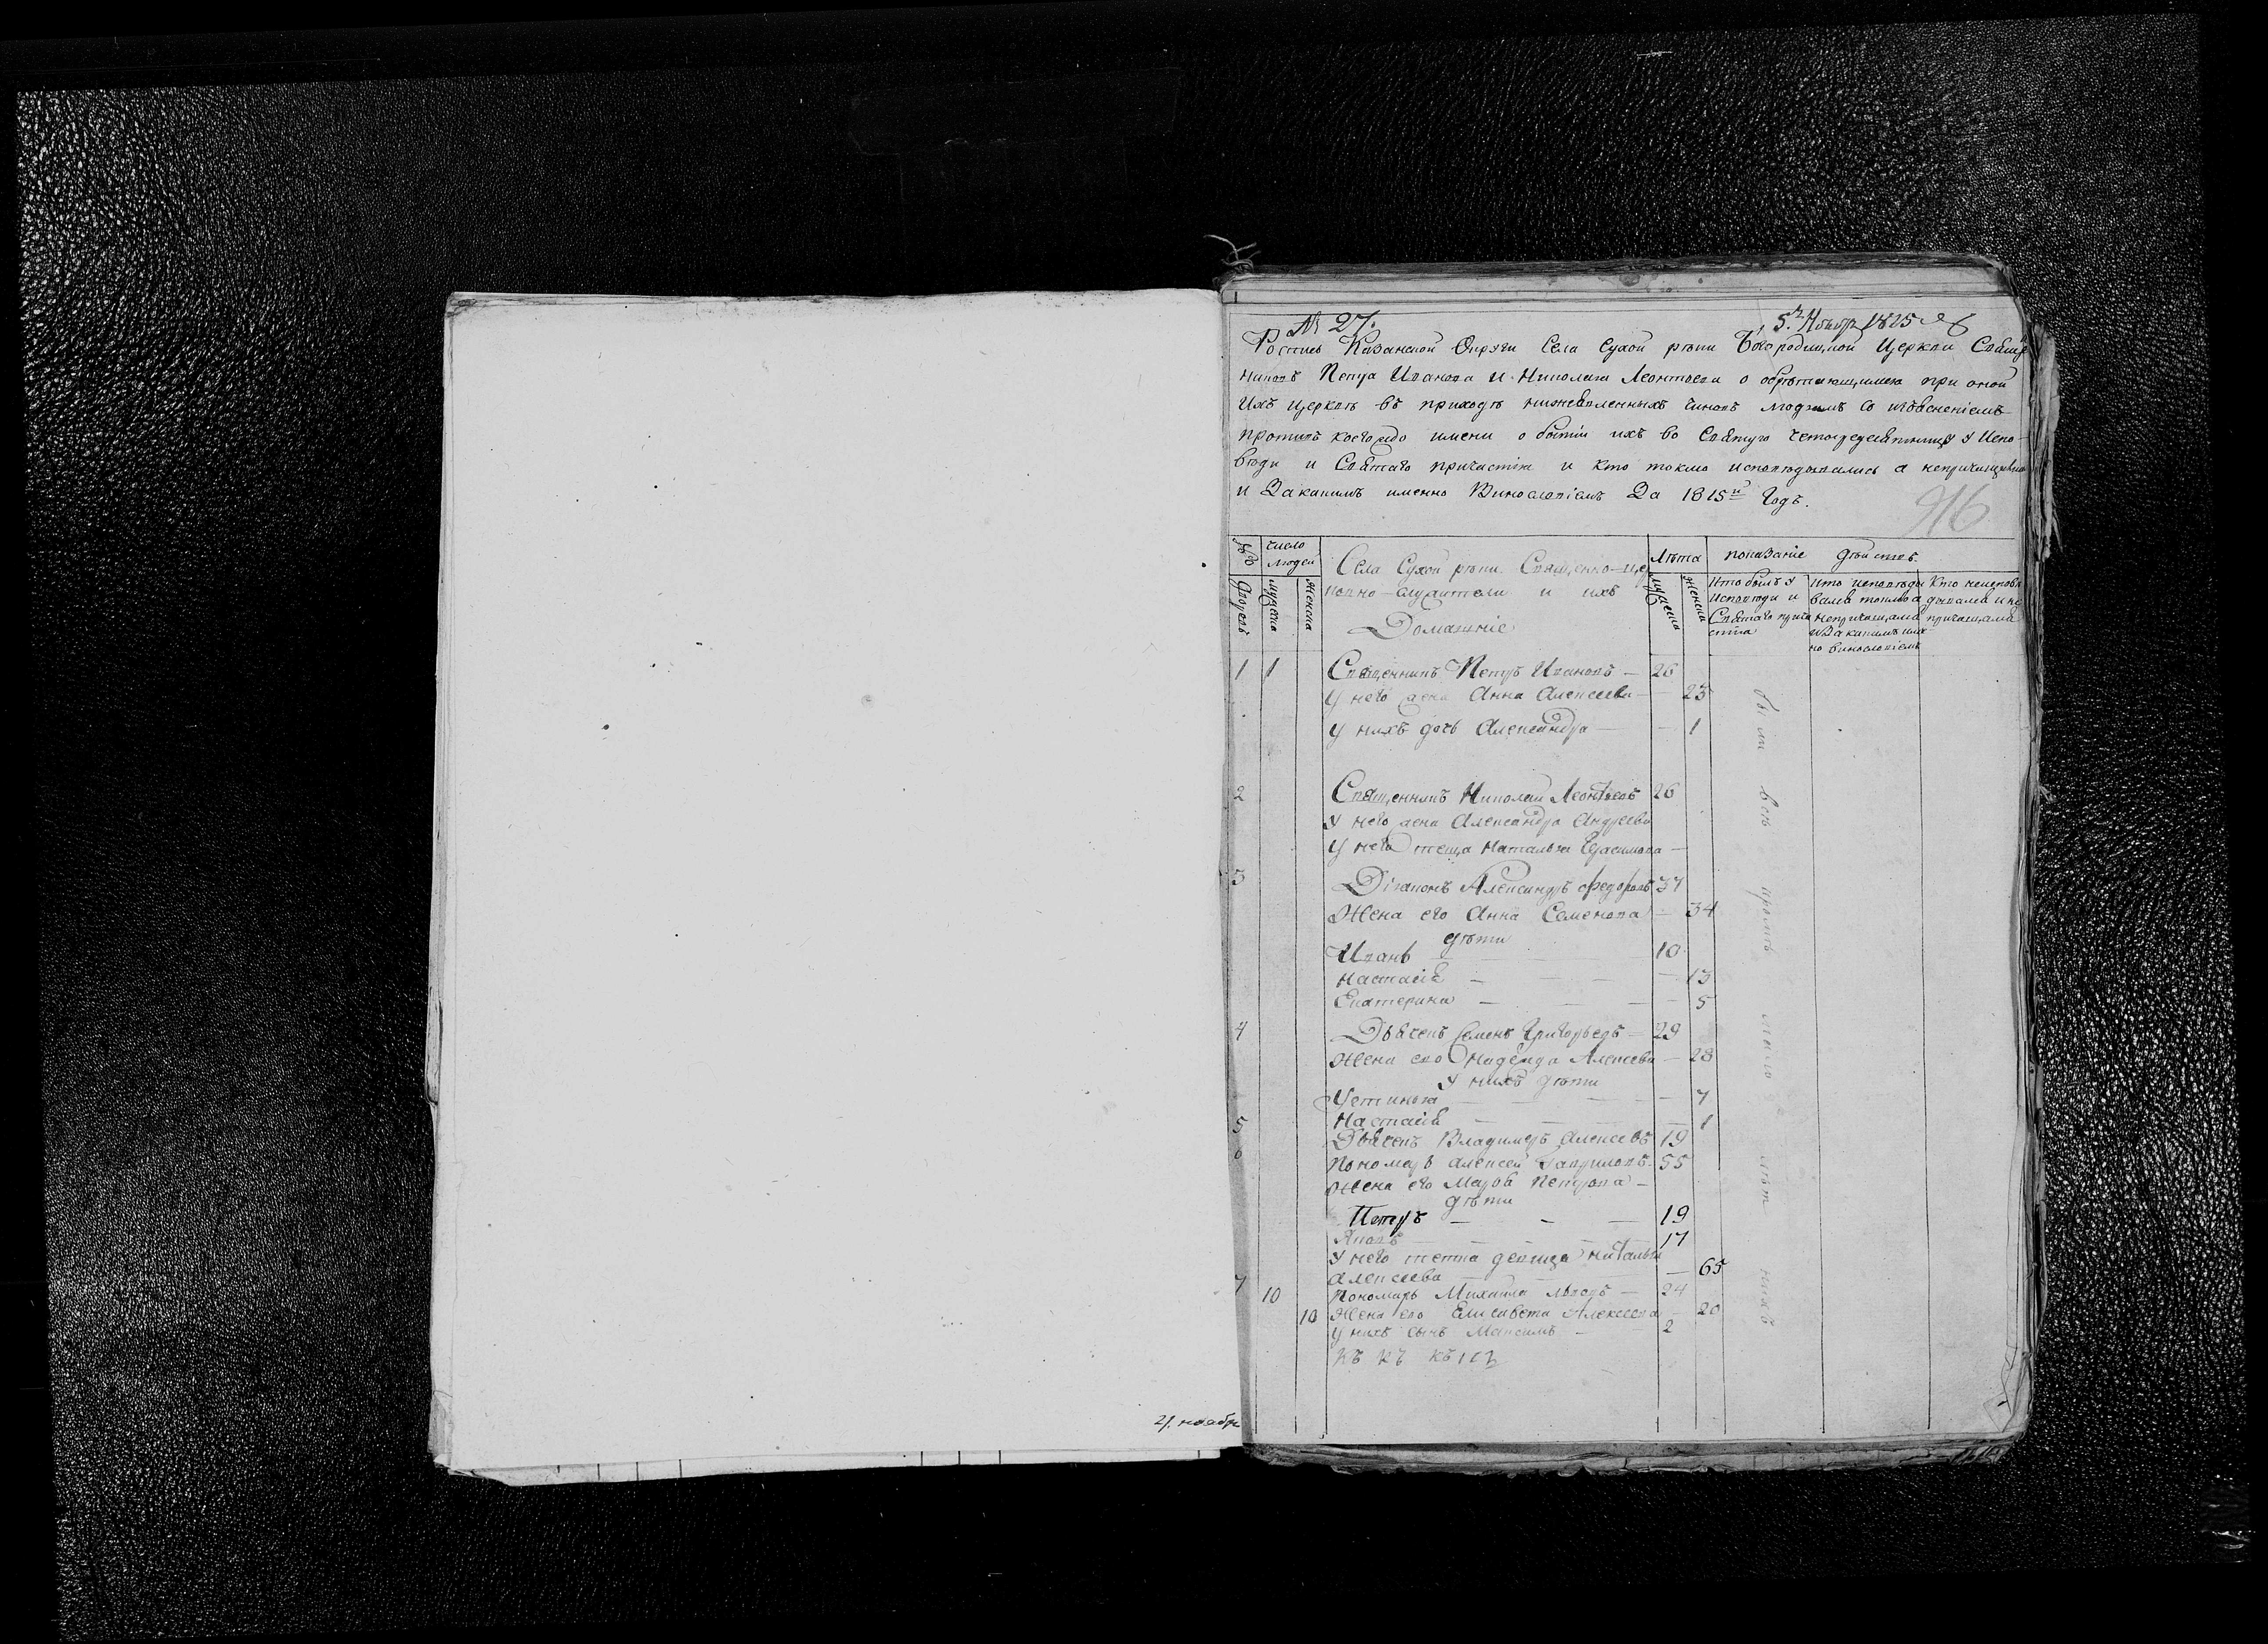 № 27.
5. Ноябр 1825
Роспись Казанской Округи Села Сухой рѣки Богородицкой Церкви Свящѣ
никовъ Петра Иванова и Николая Леонтьева о обрѣтающимся при оной
ихъ церквѣ въ приходѣ нижеявленныхъ чиновъ людямъ со изъясненіемъ
противъ коегождо имени о бытіи ихъ во Святую четыредесятницу у Испо-
вѣди и Святаго причастія и кто токмо исповѣдывались а непричащались
и За какимъ именно Винословіемъ За 1815й Годъ.
916
Число людей
Села Сухой рѣки Священно-цер
ковно-служители и ихъ
Домашніе
Лѣта
показаніе дѣйствъ
Дворовъ
мужеска
женска
мужеска
женска
Кто былъ у Исповѣди и Святаго прича стія
кто исповѣды вался токмо а непричащался и За какимъ имен но винословіемъ
Кто неисповѣ дывался и не причащался
1 1 Священникъ Петръ Ивановъ — 26
У него жена Анна Алексеева — 25
У нихъ дочь Александра — — 1
2 Священникъ Николай Леонтьевъ 26
У него жена Александра Андреева
У него теща Наталья Герасимова —
3 Діаконъ Александръ Федоровъ 37
Жена его Анна Семенова — 34
дѣти
Иванъ 10
Настасія — — — 13
Екатерина — — — 5
4 Дьячекъ Семенъ Григорьевъ — 29
Жена его Надежда Алексеева — 28
У нихъ дѣти
Устинья — — 7
Настасія — — — 1
5 Дьячекъ Владимеръ Алексеевъ 19
6 Пономарь Алексей Гавриловъ 55
Жена его Марья Петрова —
дѣти
Петръ — — — 19
Яковъ — — — 17
У него тетка девица Наталья
Алексеева — 65
7 10 Пономарь Михайла Львовъ — 24
10 Жена его Елисавета Алексеева — 20
У нихъ сынъ Максимъ — 2
къ къ къ
21. ноября